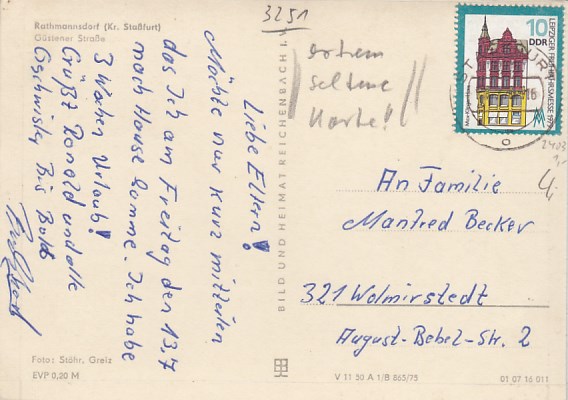 Rathmannsdorf (Kr. Staßfurt)
Güstener Straße
3251
Liebe Eltern!
Möchte nur kurz mitteilen
das Ich am Freitag den 13,7
nach Hause komme. Ich habe
3 Wochen Urlaub!
Grüßt Ronald und alle
Gschwister Bis Bald
extrem
seltene
Karte!!
BILD UND HEIMAT REICHENBACH i. V.
LEIPZIGER FRÜHJAHRSMESSE
10
DDR
2403
An Familie
Manfred Becker
321 Wolmirstedt
August-Bebel-Str. 2
Foto: Stöhr, Greiz
EVP 0,20 M
V 11 50 A 1/B 865/75
01 07 16 011